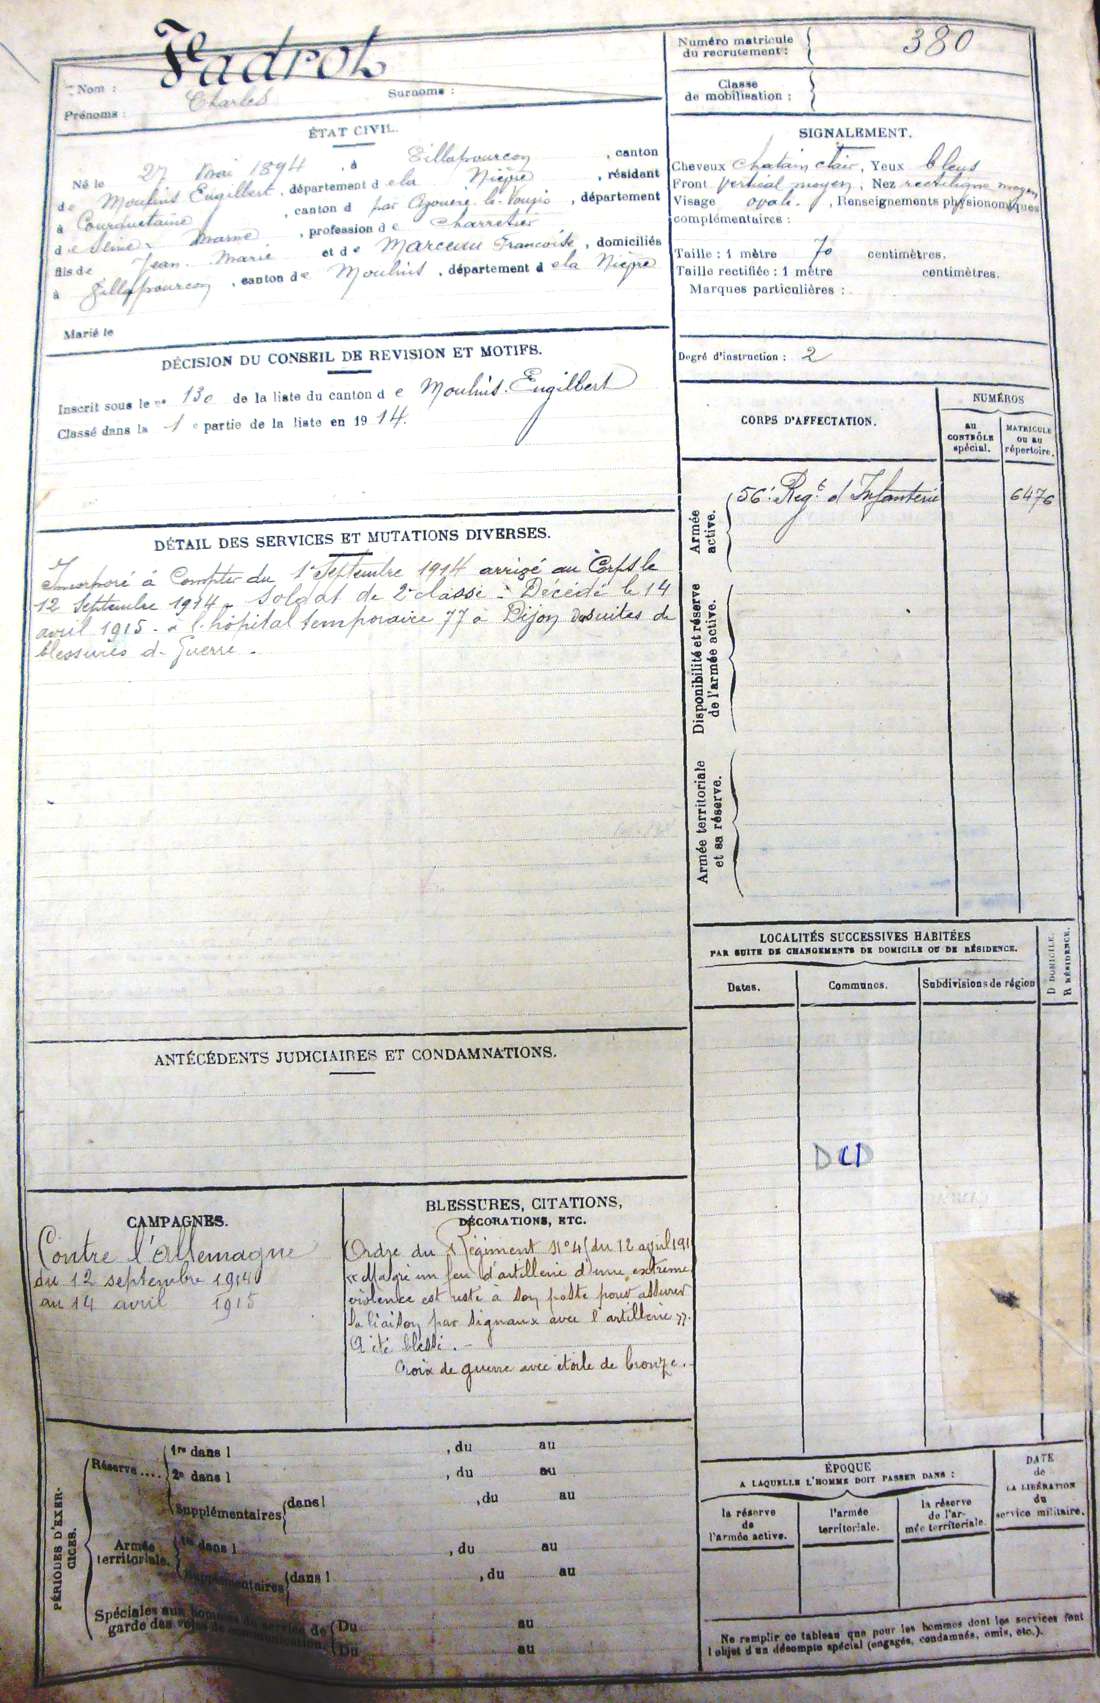 Nom : Fadrot
Prénoms : Charles Surnoms :
Numéro matricule du recrutement : 380
Classe de mobilisation :
ÉTAT CIVIL.
Né le 27 mai 1894, à Villapourçon, canton
de Moulins Engilbert, département de la Nièvre, résidant
à Courquetaine, canton d par Ozouer le Vougis, département
de Seine & Marne, profession de Charretier
fils de Jean Marie et de Marceau Françoise, domiciliés
à Villapourçon, canton de Moulins, département de la Nièvre
Marié le
SIGNALEMENT.
Cheveux chatain clair, Yeux bleus
Front vertical moyen, Nez rectiligne moyen
Visage ovale, Renseignements physionomiques
complémentaires :
Taille : 1 mètre 70 centimètres.
Taille rectifiée : 1 mètre centimètres.
Marques particulières :
Degré d'instruction : 2
DÉCISION DU CONSEIL DE REVISION ET MOTIFS.
Inscrit sous le n° 130 de la liste du canton de Moulins-Engilbert
Classé dans la 1e partie de la liste en 1914.
DÉTAIL DES SERVICES ET MUTATIONS DIVERSES.
Incorporé à Compter du 1er Septembre 1914 arrivé au Corps le
12 Septembre 1914. Soldat de 2e classe. Décédé le 14
avril 1915 - à l'hôpital temporaire 77 à Dijon des suites de
blessures de Guerre.
CORPS D'AFFECTATION.
NUMÉROS
au CONTRÔLE spécial.
MATRICULE ou au répertoire.
Armée active.
56e Regt d'Infanterie 6476
Disponibilité et réserve de l'armée active.
Armée territoriale et sa réserve.
LOCALITÉS SUCCESSIVES HABITÉES
PAR SUITE DE CHANGEMENTS DE DOMICILE OU DE RÉSIDENCE.
Dates. Communes. Subdivisions de région
D DOMICILE.
R RÉSIDENCE.
DCD
ANTÉCÉDENTS JUDICIAIRES ET CONDAMNATIONS.
CAMPAGNES.
Contre l'Allemagne
du 12 septembre 1914
au 14 avril 1915
BLESSURES, CITATIONS,
DÉCORATIONS, ETC.
Ordre du Régiment N° 41 du 12 avril 191
"Malgré un feu d'artillerie d'une extrême
violence est resté à son poste pour assurer
la liaison par signaux avec l'artillerie".
A été blessé. -
Croix de guerre avec étoile de bronze. -
PÉRIODES D'EXERCICES.
Réserve....
1re dans l , du au
2e dans l , du au
Supplémentaires dans l , du au
Armée territoriale.
1re dans l , du au
Supplémentaires dans l , du au
Spéciales aux hommes du service de
garde des voies de communication.
Du au
Du au
ÉPOQUE
A LAQUELLE L'HOMME DOIT PASSER DANS :
la réserve de l'armée active.
l'armée territoriale.
la réserve de l'armée territoriale.
DATE de LA LIBÉRATION du service militaire.
Ne remplir ce tableau que pour les hommes dont les services font
l'objet d'un décompte spécial (engagés, condamnés, omis, etc.).